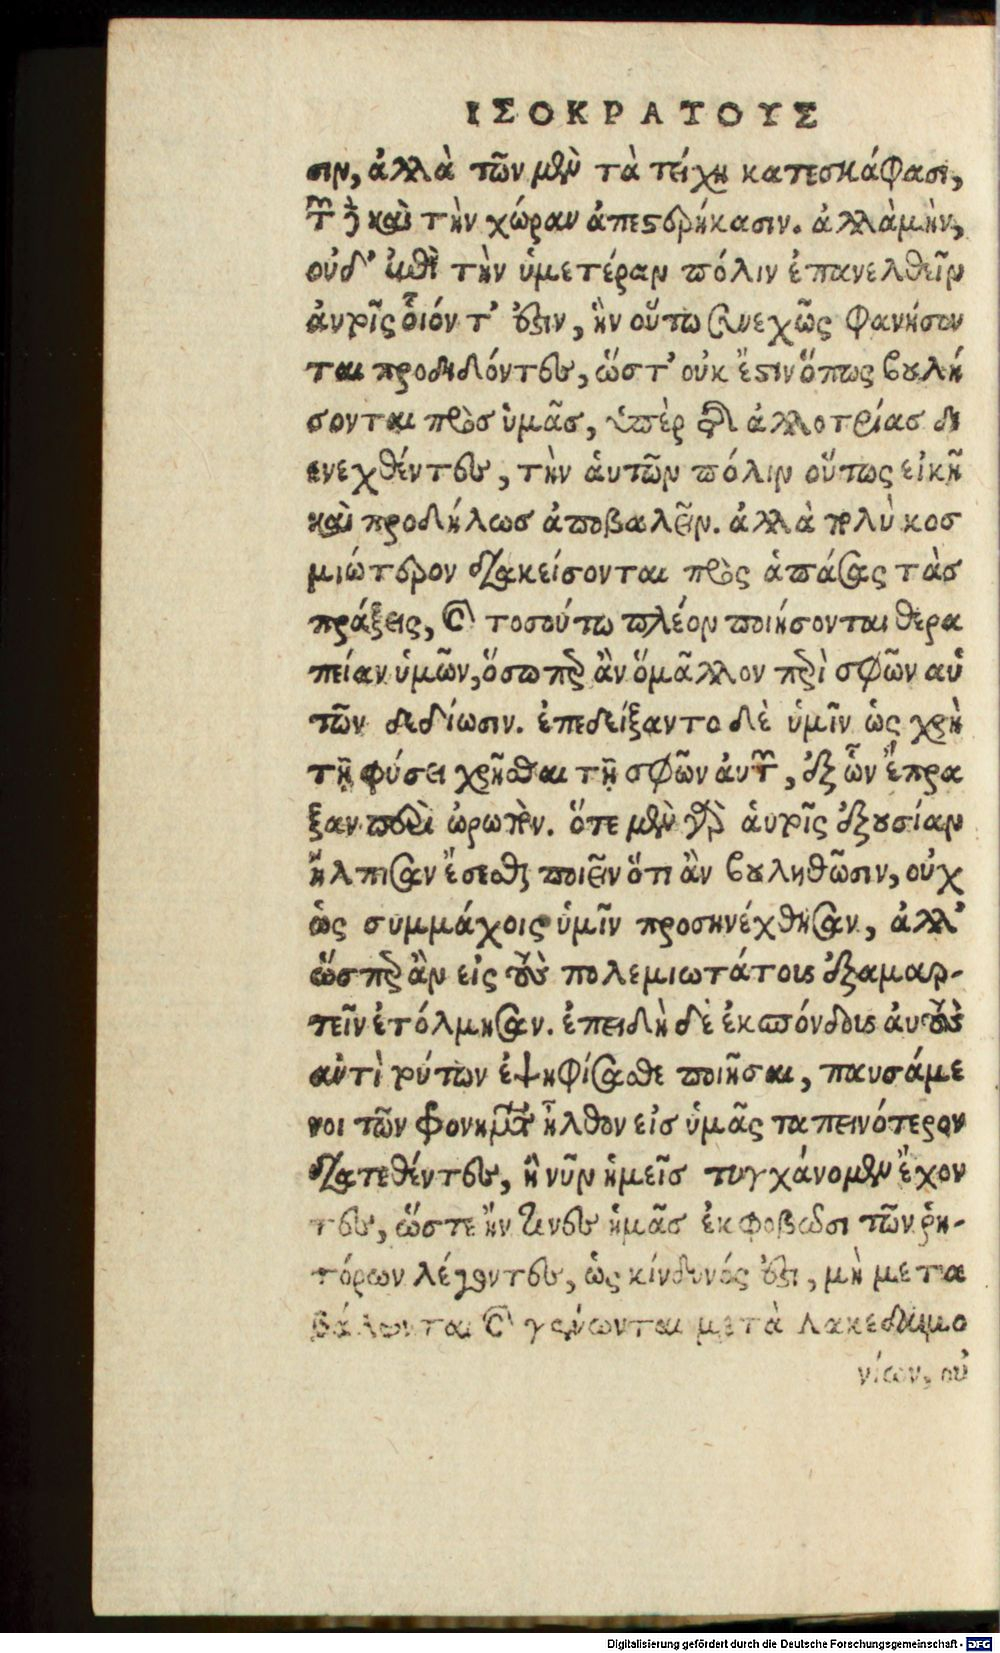 ΙΣΟΚΡΑΤΟΥΣ
σιν, ἀλλὰ τῶν μὲν τὰ τείχη κατεσκάφασι,
τῶν δὲ καὶ τὴν χώραν ἀπεστερήκασιν. ἀλλὰ μὴν,
οὐδ' ἐπὶ τὴν ὑμετέραν πόλιν ἐπανελθεῖν
ἀυτοῖς οἷόν τ' ἐστιν, ἢν οὕτω συνεχῶς φανήσον
ται προδιδόντες, ὥστ' οὐκ ἔστιν ὅπως βουλή
σονται πρὸσ ὑμᾶς, ὑπὲρ τῆς ἀλλοτρίας δι
ενεχθέντες, τὴν ἁυτῶν πόλιν οὕτως εἰκῆ
καὶ προδήλωσ ἀποβαλεῖν. ἀλλὰ πολὺ κοσ
μιώτερον διακείσονται πρὸς ἁπάσας τὰσ
πράξεις, καὶ τοσούτω πλέον ποιήσονται θερα
πείαν ὑμῶν, ὅσωπερ ἂν ὁμᾶλλον περὶ σφῶν αὐ
τῶν δεδίωσιν. ἐπεδείξαντο δὲ ὑμῖν ὡς χρὴ
τῇ φύσει χρῆσθαι τῇ σφῶν ἀυτῶν, ἐξ ὧν ἔπρα
ξαν περὶ ὠρωπὸν. ὅτε μὲν γὰρ ἁυτοῖς ἐξουσίαν
ἤλπισαν ἔσεσθαι ποιεῖν ὅτι ἂν βουληθῶσιν, οὐχ
ὡς συμμάχοις ὑμῖν προσηνέχθησαν, ἀλλ'
ὥσπερ ἂν εἰς τοὺς πολεμιωτάτοις ἐξαμαρ-
τεῖν ἐτόλμησαν. ἐπειδὴ δὲ ἐκσπόνδοις ἀυτοὺς
αὐτὶ τούτων ἐψηφίσασθε ποιῆσαι, παυσάμε
νοι τῶν φρονημάτων ἦλθον εἰσ ὑμᾶς ταπεινότερον
διατεθέντες, ἢ νῦν ἡμεῖσ τυγχάνομεν ἔχον
τες, ὥστε ἤν τινες ἡμᾶσ ἐκφοβῶσι τῶν ῥη-
τόρων λέγοντες, ὡς κίνδυνός ἐστι, μὴ μετα
βάλωνται καὶ γένωνται μετὰ λακεδαιμο
νίων, οὐ
Digitalisierung gefördert durch die Deutsche Forschungsgemeinschaft - DFG